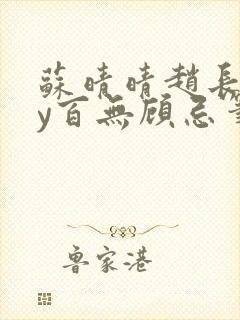 蘇晴晴趙長
y百無顧忌
魯家港